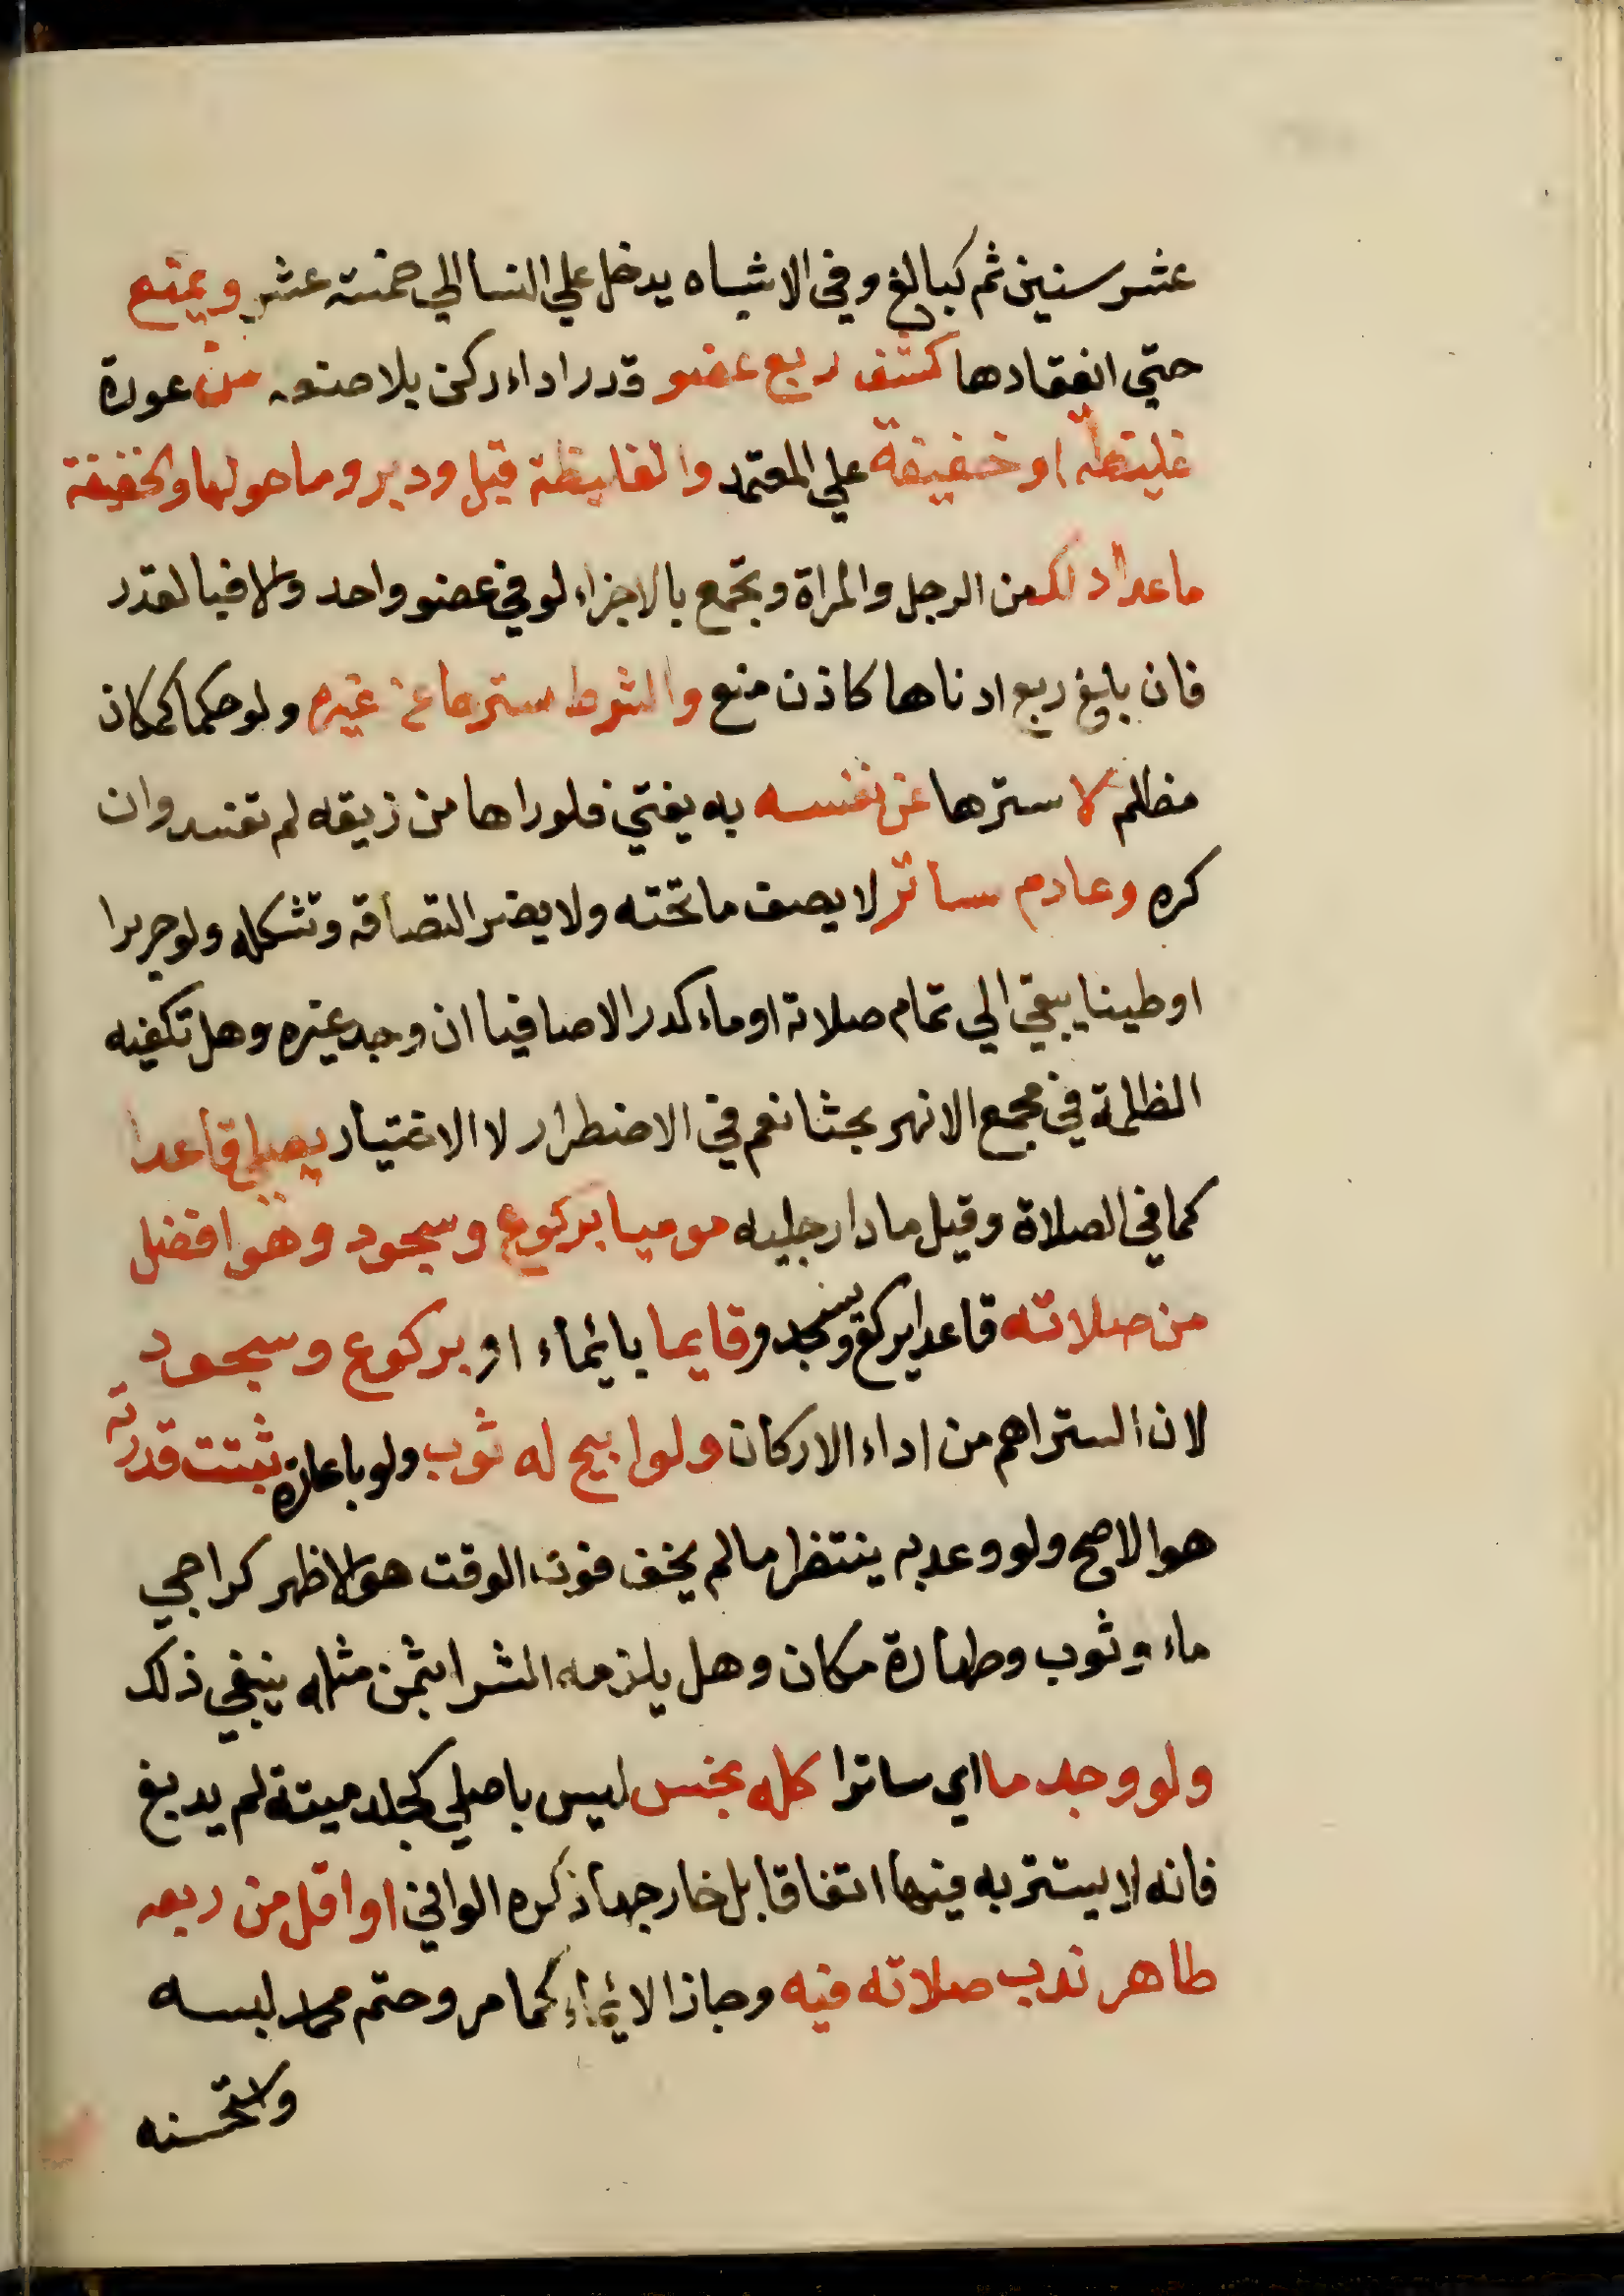 عشر سنين ثم كبالغ وفي الاشباه يدخل علي النسا الي خمسة عشر ويمنع
حتي انعقادها كشف ربع عضو قدر اداء ركن بلا صنعه من عورة
غليظة او خفيفة علي المعتمد والغليظة قبل ودبر وما حولهما والخفيفة
ما عدا ذلك من الرجل والمراة وتجمع بالاجزاء لو في عضو واحد والا فبالقدر
فان بلغ ربع ادناها كاذن منع والشرط سترها عن غيره ولو حكما كمكان
مظلم لا سترها عن نفسه به يفتي فلو راها من زيقه لم تفسد وان
كره وعادم ساتر لا يصف ما تحته ولا يضر التصاقه وتشكله ولو حريرا
او طينا يبقي الي تمام صلاته او ماء كدر الا صافيا ان وجد غيره وهل تكفيه
الظلمة في مجمع الانهر بحثا نعم في الاضطرار لا الاختيار يصلي قاعدا
كما في الصلاة وقيل مادا رجليه موميا بركوع وسجود وهو افضل
من صلاته قاعدا يركع ويسجد وقايما بايماء او بركوع وسجود
لان الستر اهم من اداء الاركان ولو ابيح له ثوب ولو باعارة ثبتت قدرته
هو الاصح ولو وعد به ينتظر ما لم يخف فوت الوقت هو الاظهر كراجي
ماء وثوب وطهارة مكان وهل يلزمه الشرا بثمن مثله ينبغي ذلك
ولو وجد ما اي ساترا كله نجس ليس باصلي كجلد ميتة لم يدبغ
فانه لا يستتر به فيها اتفاقا بل خارجها ذكره الواني او اقل من ربعه
طاهر ندب صلاته فيه وجاز الايماء كما مر وحتم محمد لبسه
واستحسنه